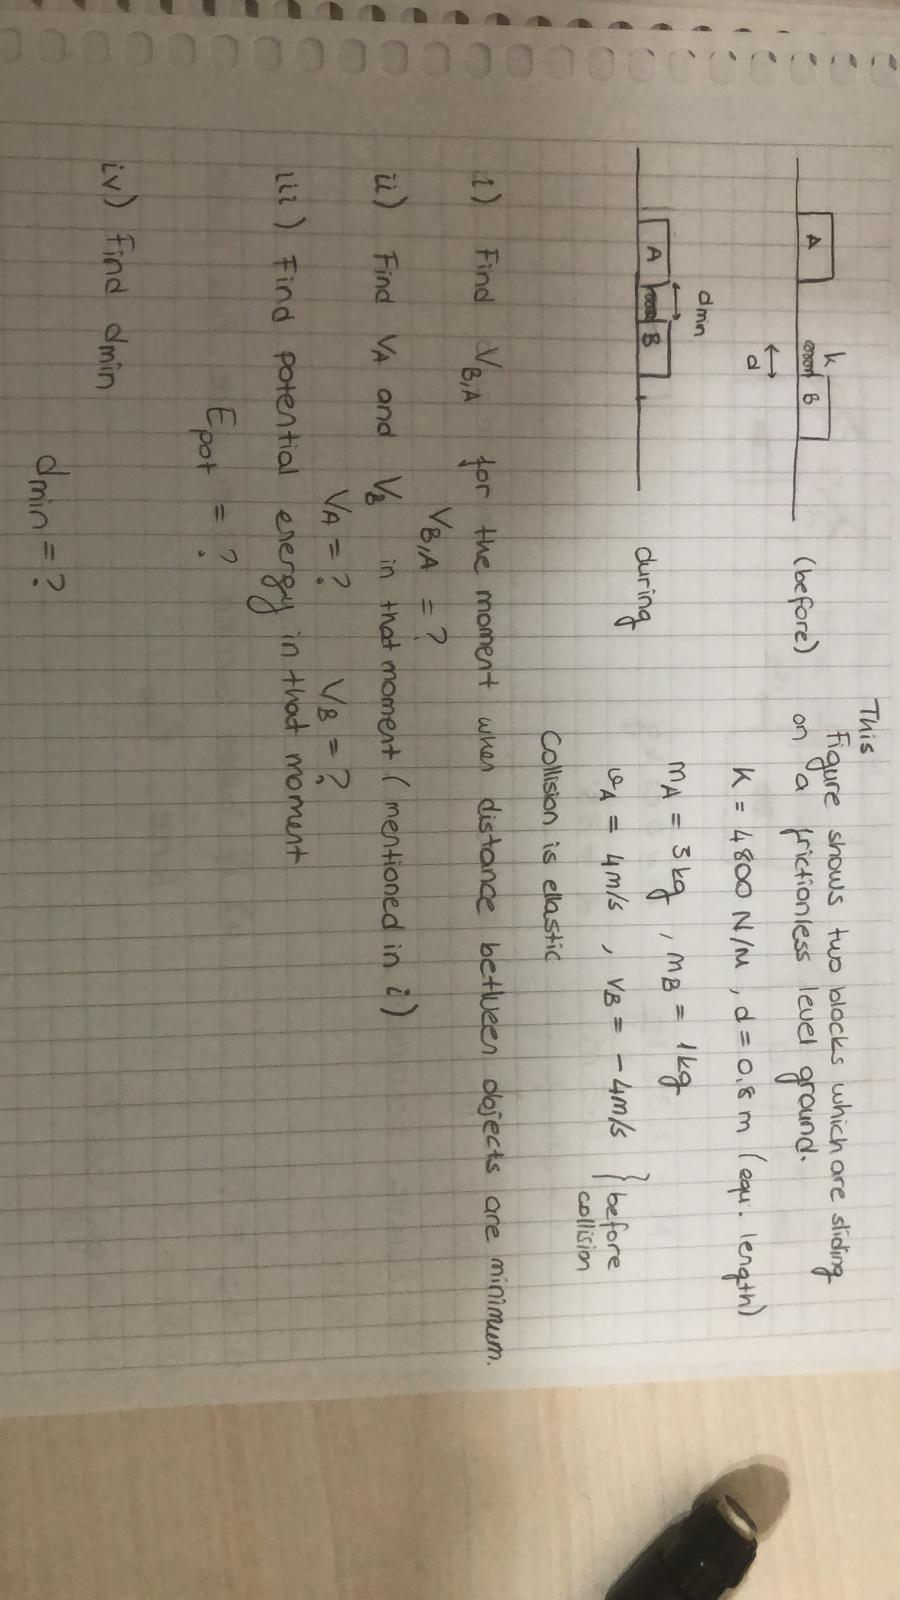 This
Figure shows two blocks which are sliding
on a frictionless level ground.
A k B (before)
d
k = 4800 N/m, d = 0,8 m (equi. length)
dmin
mA = 3 kg, mB = 1 kg
A B during
vA = 4 m/s, vB = -4 m/s } before
collision
Collision is ellastic
i) Find VB,A for the moment when distance between objects are minimum.
VB,A = ?
ii) Find VA and VB in that moment (mentioned in i)
VA = ? VB = ?
iii) Find potential energy in that moment
Epot = ?
iv) Find dmin
dmin = ?